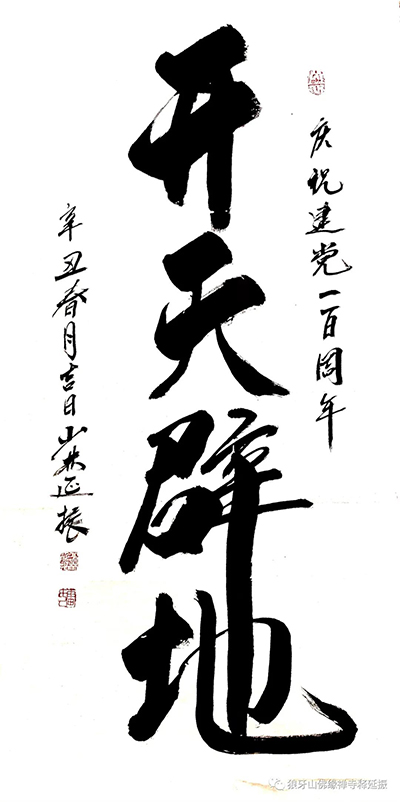 庆祝建党一百周年
开天辟地
辛丑春月吉日山林延振
狼牙山佛缘禅寺释延振